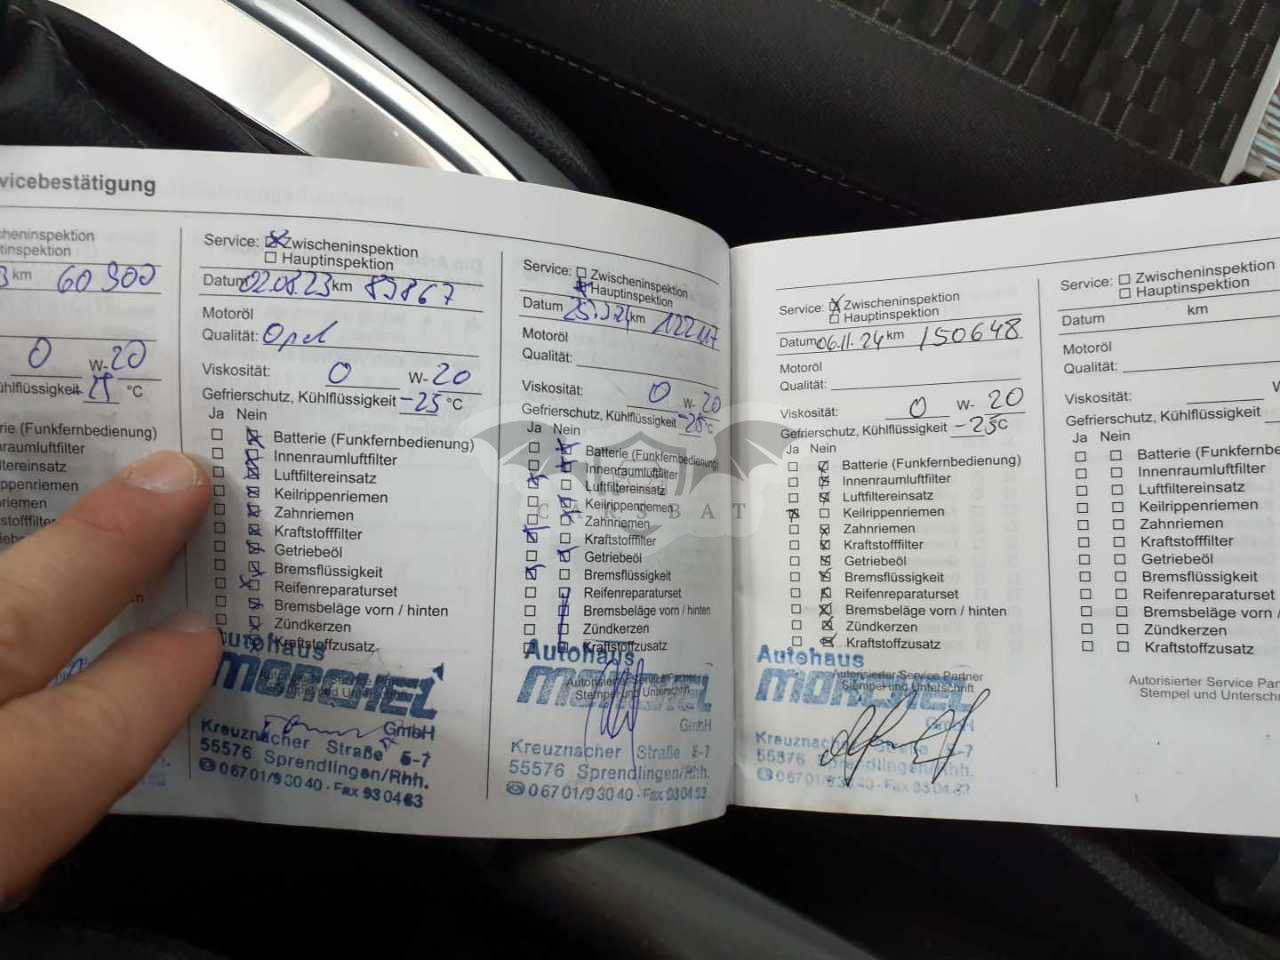 vicebestätigung
cheninspektion
tinspektion
km 60 900
0 W-20
ühlflüssigkeit -25 °C
rie (Funkfernbedienung)
nraumluftfilter
iltereinsatz
rippenriemen
riemen
stofffilter
Service: Zwischeninspektion
Hauptinspektion
Datum 02.08.23 km 89867
Motoröl
Qualität: Opel
Viskosität: 0 W-20
Gefrierschutz, Kühlflüssigkeit -25 °C
Ja Nein
Batterie (Funkfernbedienung)
Innenraumluftfilter
Luftfiltereinsatz
Keilrippenriemen
Zahnriemen
Kraftstofffilter
Getriebeöl
Bremsflüssigkeit
Reifenreparaturset
Bremsbeläge vorn / hinten
Zündkerzen
Kraftstoffzusatz
Autohaus
GmbH
Kreuznacher Straße 5-7
55576 Sprendlingen/Rhh.
06701/93040 · Fax 930463
Service: Zwischeninspektion
Hauptinspektion
Datum km 122117
Motoröl
Qualität:
Viskosität: 0 W-20
Gefrierschutz, Kühlflüssigkeit -25 °C
Ja Nein
Batterie (Funkfernbedienung)
Innenraumluftfilter
Luftfiltereinsatz
Keilrippenriemen
Zahnriemen
Kraftstofffilter
Getriebeöl
Bremsflüssigkeit
Reifenreparaturset
Bremsbeläge vorn / hinten
Zündkerzen
Kraftstoffzusatz
Autohaus
Autorisierter Service Partner
Stempel und Unterschrift
GmbH
Kreuznacher Straße 5-7
55576 Sprendlingen/Rhh.
06701/93040 · Fax 930463
CARSBAT
Service: Zwischeninspektion
Hauptinspektion
Datum 06.11.24 km 150648
Motoröl
Qualität:
Viskosität: 0 W-20
Gefrierschutz, Kühlflüssigkeit -25 °C
Ja Nein
Batterie (Funkfernbedienung)
Innenraumluftfilter
Luftfiltereinsatz
Keilrippenriemen
Zahnriemen
Kraftstofffilter
Getriebeöl
Bremsflüssigkeit
Reifenreparaturset
Bremsbeläge vorn / hinten
Zündkerzen
Kraftstoffzusatz
Autohaus
Autorisierter Service Partner
Stempel und Unterschrift
GmbH
Kreuznacher Straße 5-7
55576 Sprendlingen/Rhh.
06701/93040 · Fax 930463
Service: Zwischeninspektion
Hauptinspektion
Datum km
Motoröl
Qualität:
Viskosität: W-
Gefrierschutz, Kühlflüssigkeit
Ja Nein
Batterie (Funkfernbedienung)
Innenraumluftfilter
Luftfiltereinsatz
Keilrippenriemen
Zahnriemen
Kraftstofffilter
Getriebeöl
Bremsflüssigkeit
Reifenreparaturset
Bremsbeläge vorn / hinten
Zündkerzen
Kraftstoffzusatz
Autorisierter Service Par
Stempel und Unterschr